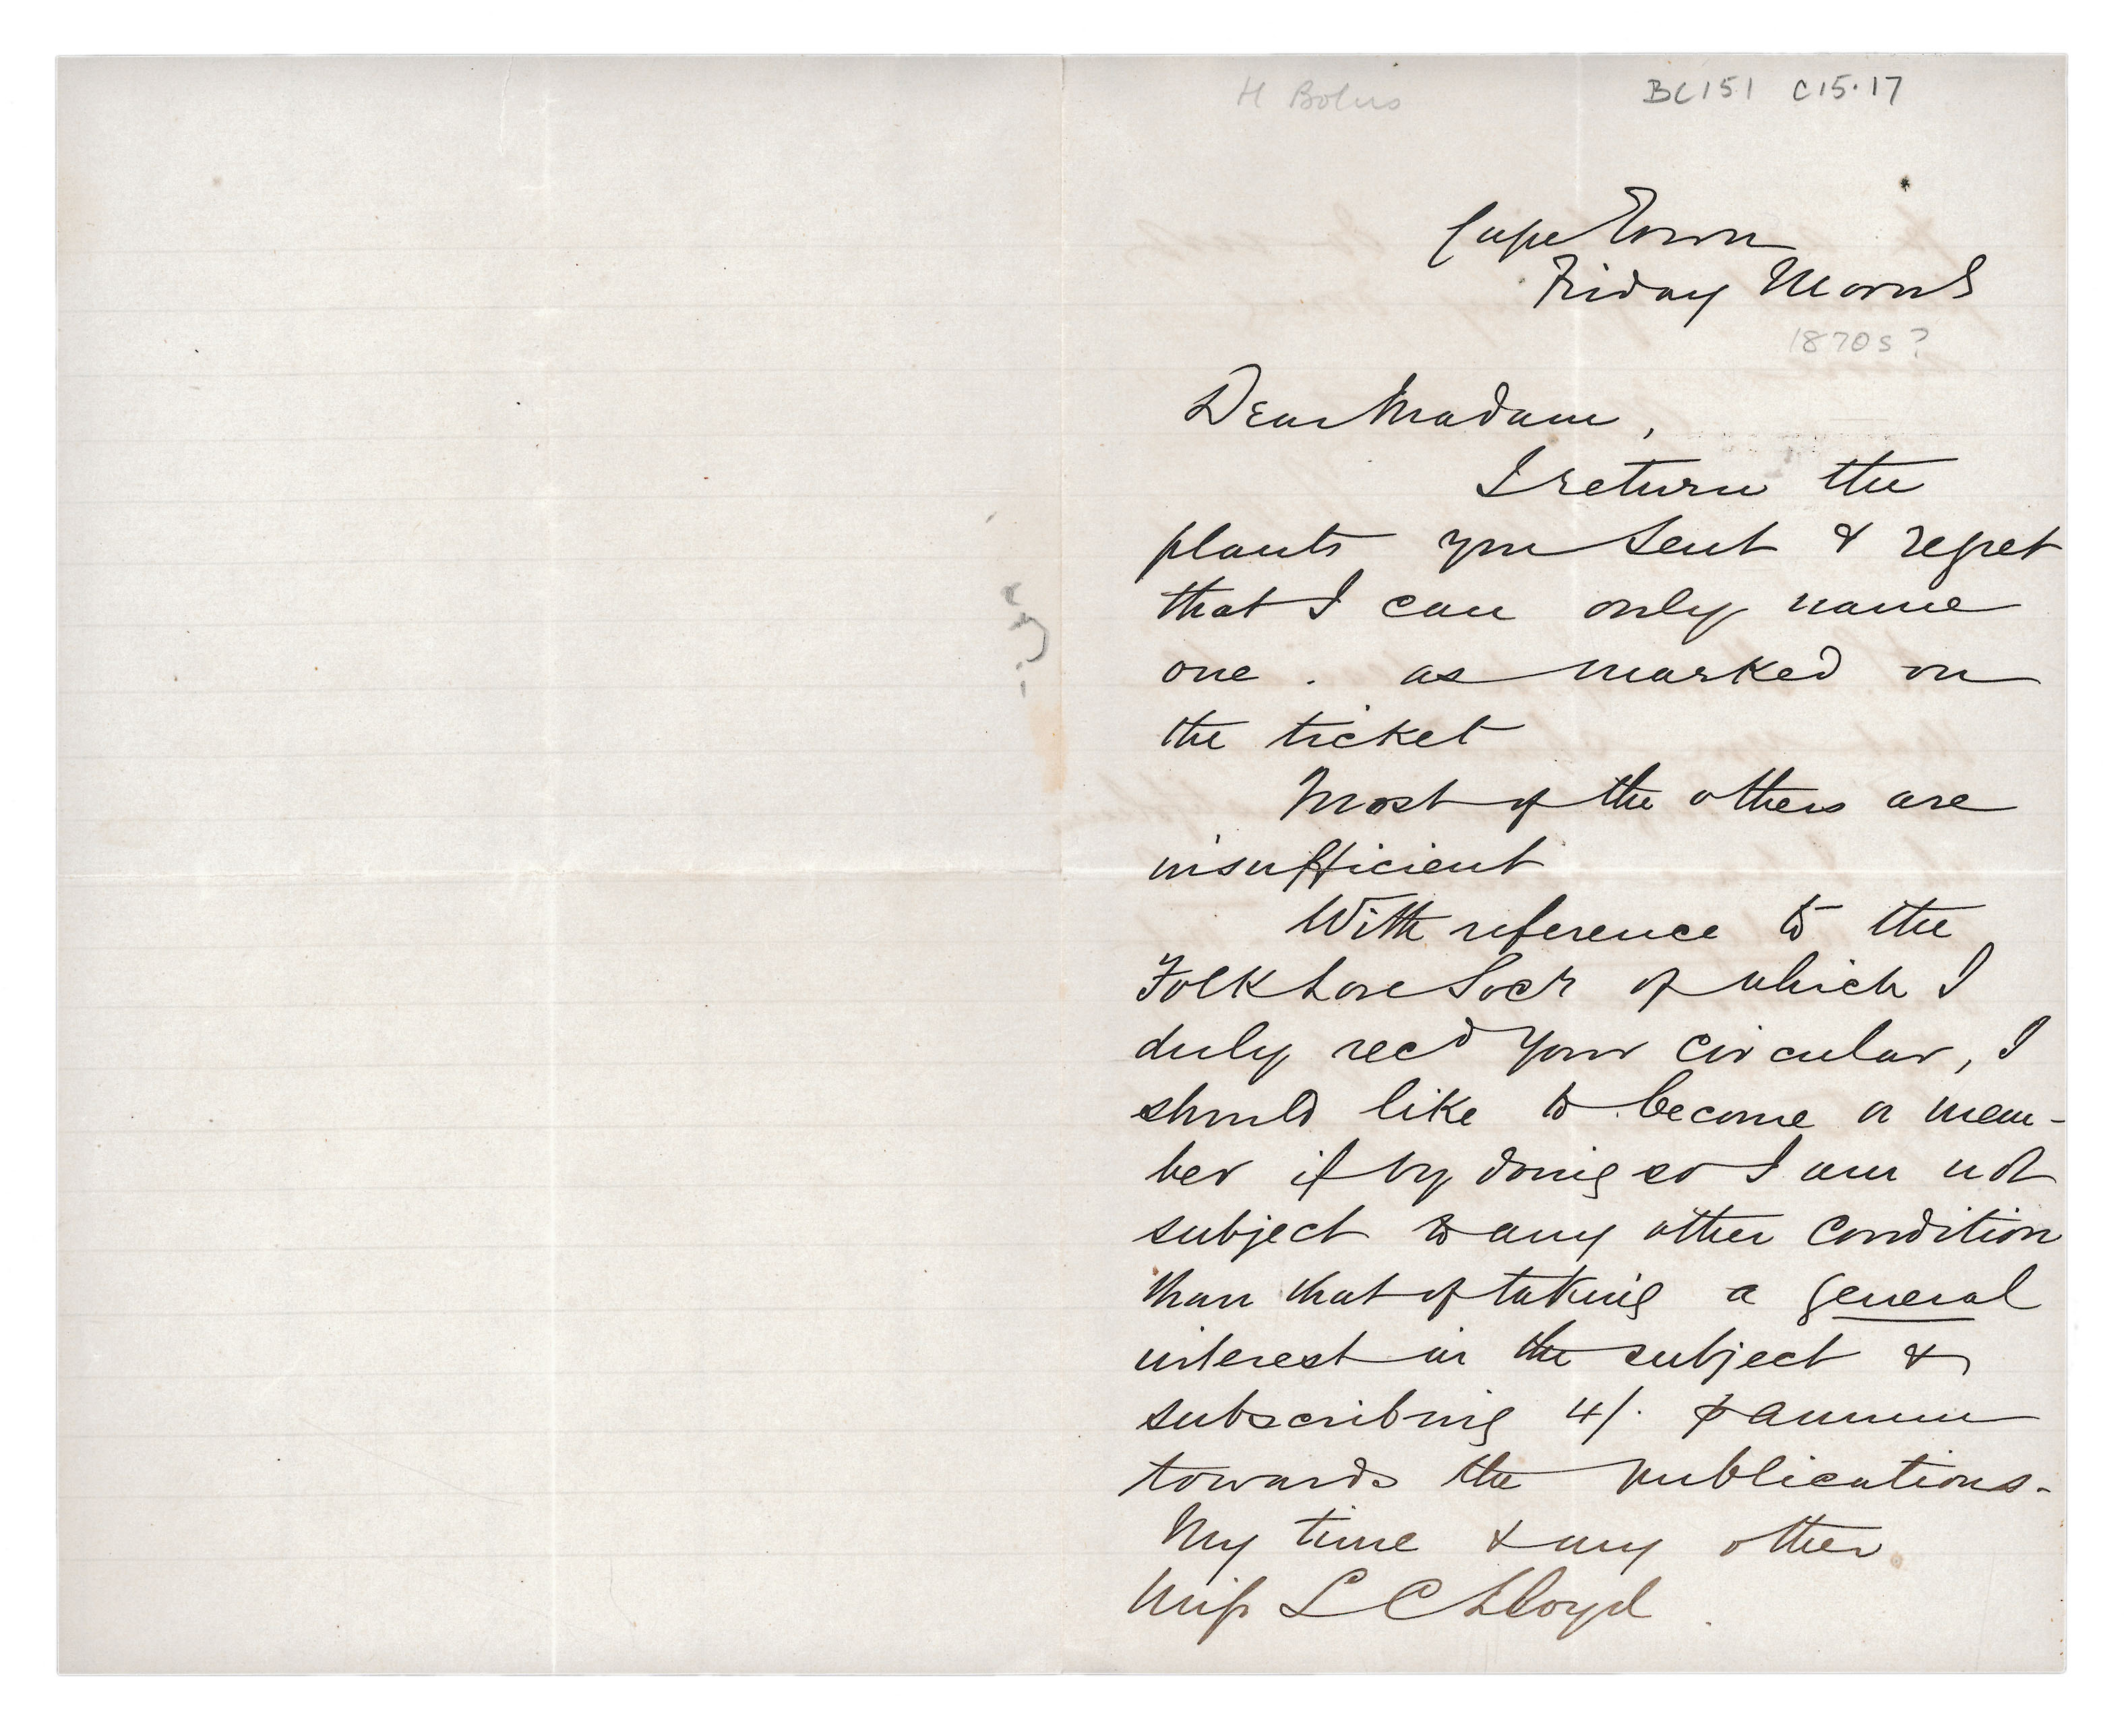 H Bolus
BC151 C15.17
Cape Town
Friday Morng
1870s?
Dear Madam,
I return the
plants you sent & regret
that I can only name
one . as marked on
the ticket
Most of the others are
insufficient
With reference to the
Folk Lore Socy of which I
duly recd your circular, I
should like to become a mem-
ber if by doing so I am not
subject to any other condition
than that of taking a general
interest in the subject &
subscribing 4/. ⅌ annum
towards the publications.
My time & my other
Miss L C Lloyd